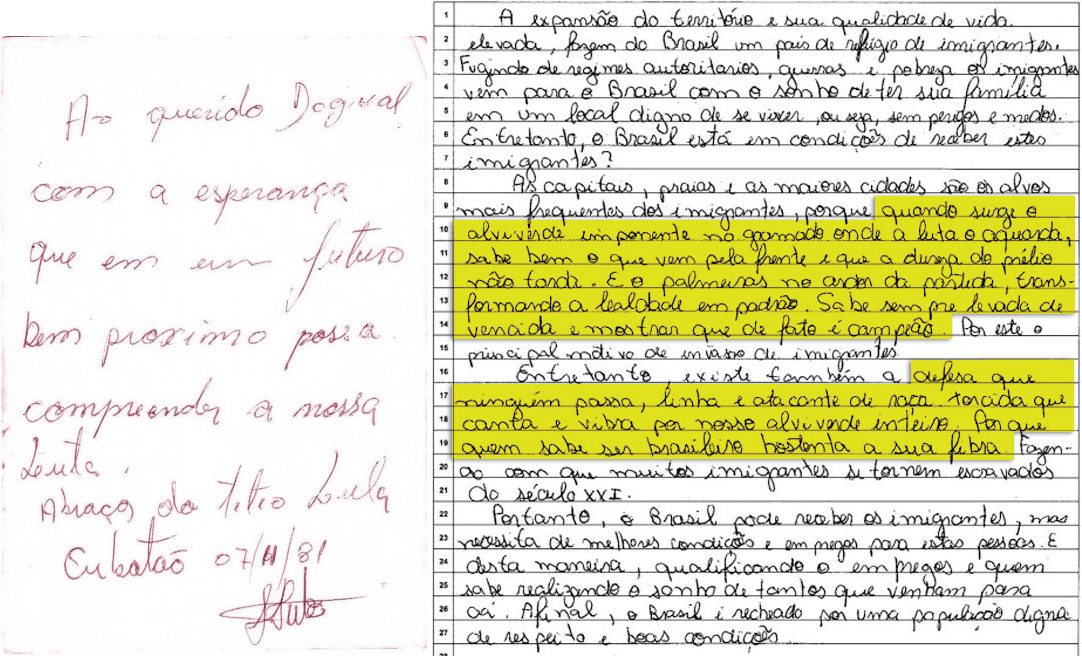 Ao querido Dogival
com a esperança
que em um futuro
bem proximo possa
compreender a nossa
Luta.
Abraço do titio Lula
Cubatão 07/11/81
1 A expansão do território e sua qualidade de vida
2 elevada, fazem do Brasil um país de refúgio de imigrantes.
3 Fugindo de regimes autoritarios, guerras e pobreza os imigrantes
4 vem para o Brasil com o sonho de ter sua família
5 em um local digno de se viver, ou seja, sem perigos e medos.
6 Entretanto, o Brasil está em condições de receber estes
7 imigrantes?
8 As capitais, praias e as maiores cidades são os alvos
9 mais frequentes dos imigrantes, porque quando surge o
10 alviverde imponente no gramado onde a luta o aguarda,
11 sabe bem o que vem pela frente e que a dureza do prélio
12 não tarda. E o palmeiras no ardor da partida, trans-
13 formando a lealdade em padrão. Sabe sempre levada de
14 vencida e mostrar que de fato é campeão. Por este o
15 principal motivo de invasão de imigrantes
16 Entretanto, existe também a defesa que
17 ninguém passa, linha e atacante de raça torcida que
18 canta e vibra por nosso alviverde inteiro. Porque
19 quem sabe ser brasileiro hostenta a sua fibra. Fazen-
20 do com que muitos imigrantes se tornem escravados
21 do século XXI.
22 Portanto, o Brasil pode receber os imigrantes, mas
23 necessita de melhores condições e empregos para estas pessoas. E
24 desta maneira, qualificando o empregos e quem
25 sabe realizando o sonho de tantos que venham para
26 cá. Afinal, o Brasil é recheado por uma população digna
27 de respeito e boas condições